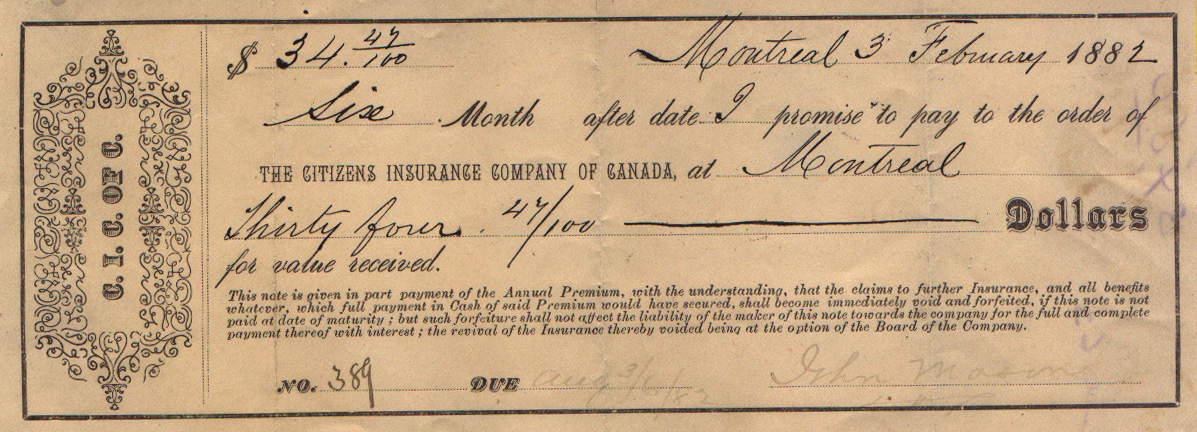 $ 34. 47/100 Montreal 3 February 1882
Six Month after date I promise to pay to the order of
THE CITIZENS INSURANCE COMPANY OF CANADA, at Montreal
Thirty four . 47/100 Dollars
for value received.
This note is given in part payment of the Annual Premium, with the understanding, that the claims to further Insurance, and all benefits
whatever, which full payment in Cash of said Premium would have secured, shall become immediately void and forfeited, if this note is not
paid at date of maturity ; but such forfeiture shall not affect the liability of the maker of this note towards the company for the full and complete
payment thereof with interest ; the revival of the Insurance thereby voided being at the option of the Board of the Company.
NO. 389 DUE Aug 3/6/82 John
C. I. C. OF C.